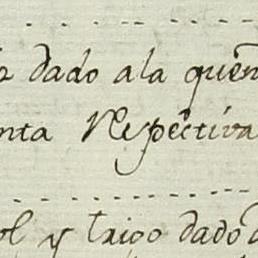 dado ala quen
nta Respectiva
ol y trigo dado